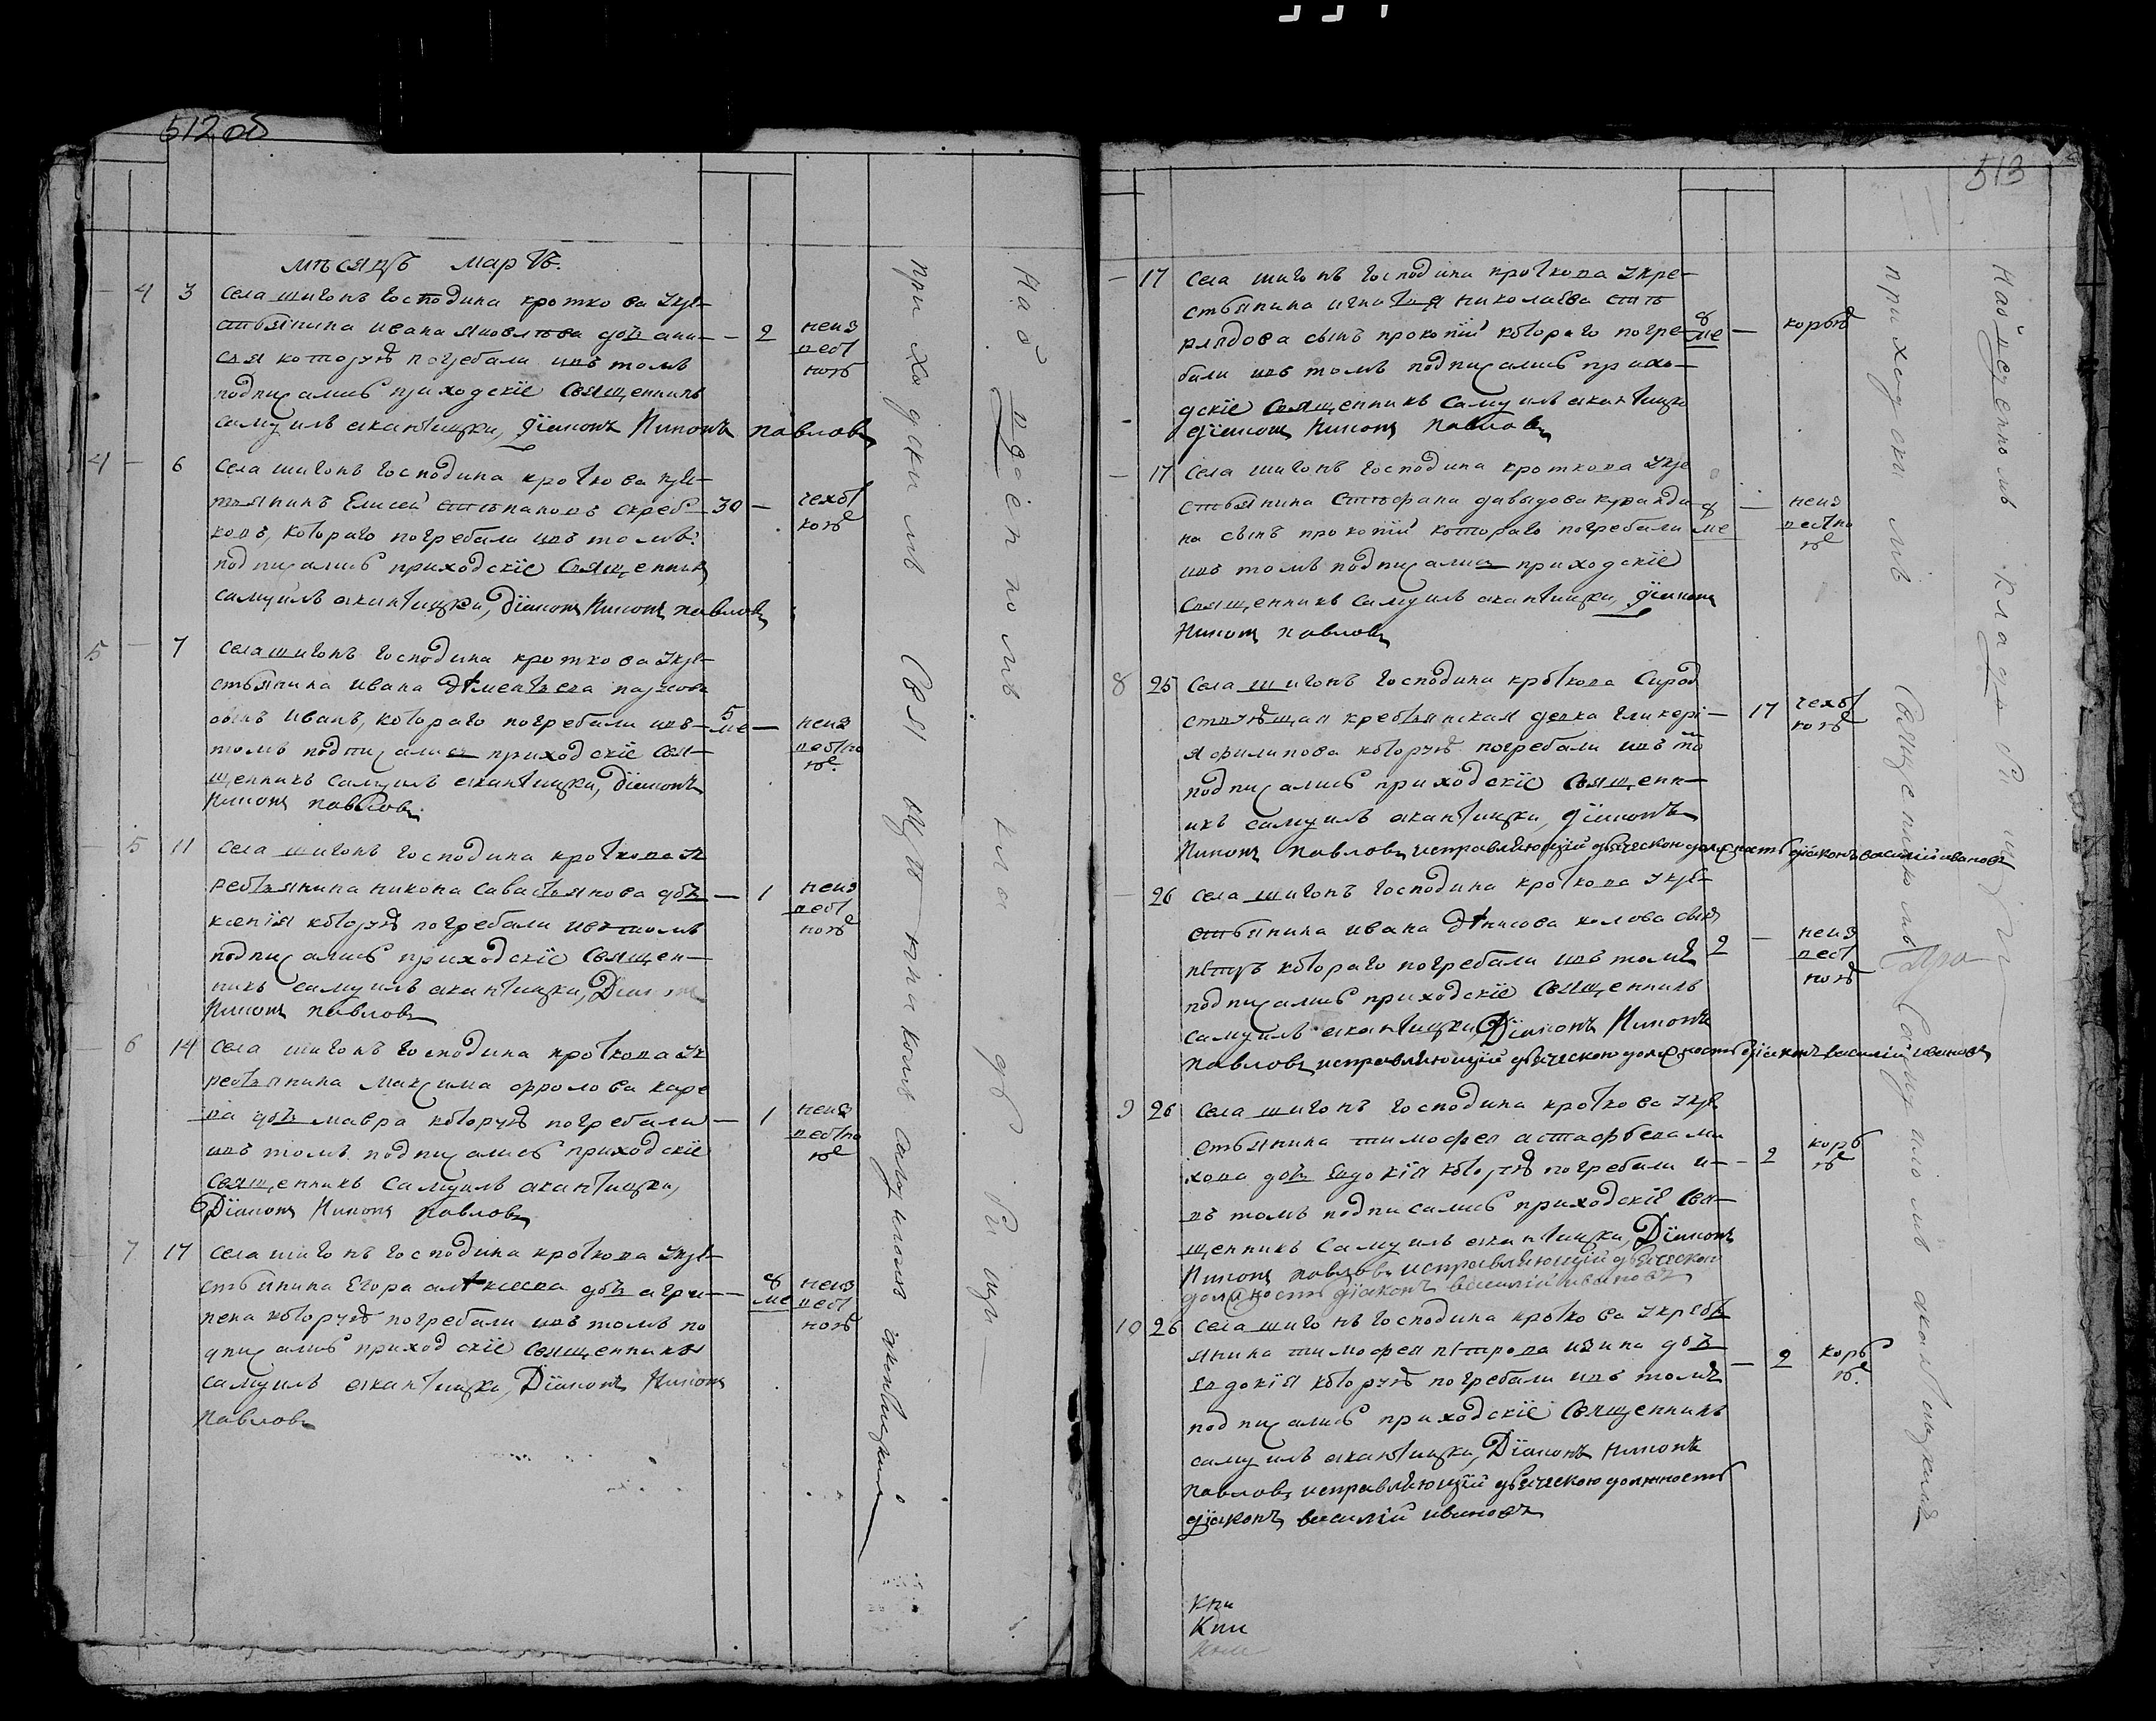 512 об
мѣсяцъ мартъ.
4 3 села шигонъ господина кроткова укре-
стьянина ивана яковлѣва дочь ани-
сья которую погребали ивъ томъ
подписались приходскіе священникъ
самуилъ акантицки, діаконъ Никонъ павловъ
— 2 неиз
вест
ною
4 — 6 села шигонъ господина кроткова кре-
тьянинъ Елисей степановъ скреб-
ковъ, котораго погребали ивъ томъ
подписались приходскіе священникъ
самуилъ акантицки, діаконъ Никонъ павловъ
30 — чехот
кою
5 — 7 села шигонъ господина кроткова укре-
стьянина ивана
сынъ иванъ, котораго погребали ивъ
томъ подписались приходскіе свя-
щенникъ самуилъ акантицки, діаконъ
Никонъ павловъ
5 ме — неиз
вестно
ю
— 5 11 села шигонъ господина кроткова ук
рестьянина никона савастьянова дочь
ксенія которую погребали ивъ томъ
подписались приходскіе священ-
никъ самуилъ акантицки, Діаконъ
Никонъ павловъ
— 1 неиз
вест
ною
— 6 14 села шигонъ господина кроткова ук
рестьянина максима фролова каре
ва дочь мавра которую погребали
ивъ томъ подписались приходскіе
священникъ самуилъ акантицки,
Діаконъ Никонъ павловъ
— 1 неиз
вестно
ю
— 7 17 села шигонъ господина кроткова укре-
стьянина Егора алексеева дочь агри-
пена которую погребали ивъ томъ по
дписались приходскіе священникъ
самуилъ акантицки, Діаконъ Никонъ
павловъ
— 8 ме неиз
вест
ною
приходскимъ священникомъ самуиломъ акантицкимъ
На отведенномъ кладбищи
513
— 17 села шигонъ господина кроткова укре-
стьянина игнатья николаева
рядова сынъ прокопій котораго погре-
бали ивъ томъ подписались прихо-
дскіе священникъ самуилъ акантицки
діаконъ Никонъ павловъ
8 ме — корью
— 17 села шигонъ господина кроткова укре
стьянина стефана давыдова куранди
на сынъ прокопій котораго погребали
ивъ томъ подписались приходскіе
священникъ самуилъ акантицки, діаконъ
Никонъ павловъ
8 ме — неиз
вестно
ю
8 25 села шигонъ господина кроткова сирод
ствующая крестьянская девка гликері-
я филипова которую погребали ивъ то
подписались приходскіе священн-
икъ самуилъ акантицки, діаконъ
Никонъ павловъ исправляющій дьяческою должность діаконъ василій ивановъ
17 чехот
кою
— 26 села шигонъ господина кроткова укре-
стьянина ивана денисова колова сынъ
петръ котораго погребали ивъ томъ
подписались приходскіе священникъ
самуилъ акантицки, Діаконъ Никонъ
павловъ исправляющій дьяческою должность діаконъ василій ивановъ
2 — неиз
вест
ною
9 26 села шигонъ господина кроткова укре
стьянина тимофея астафьева ми
хова дочь евдокія которую погребали и-
въ томъ подписались приходскіе свя-
щенникъ самуилъ акантицки, Діаконъ
Никонъ павловъ исправляющій дьяческою
должность діаконъ василій ивановъ
— 2 корь
ю
10 26 села шигонъ господина кроткова укресть
янина тимофея петрова изина дочь
евдокія которую погребали ивъ томъ
подписались приходскіе священникъ
самуилъ акантицки, Діаконъ Никонъ
павловъ исправляющій дьяческою должность
діаконъ василій ивановъ
— 2 корь
ю.
Кни
Кни
приходскимъ священникомъ самуиломъ акантицкимъ
кладбищи